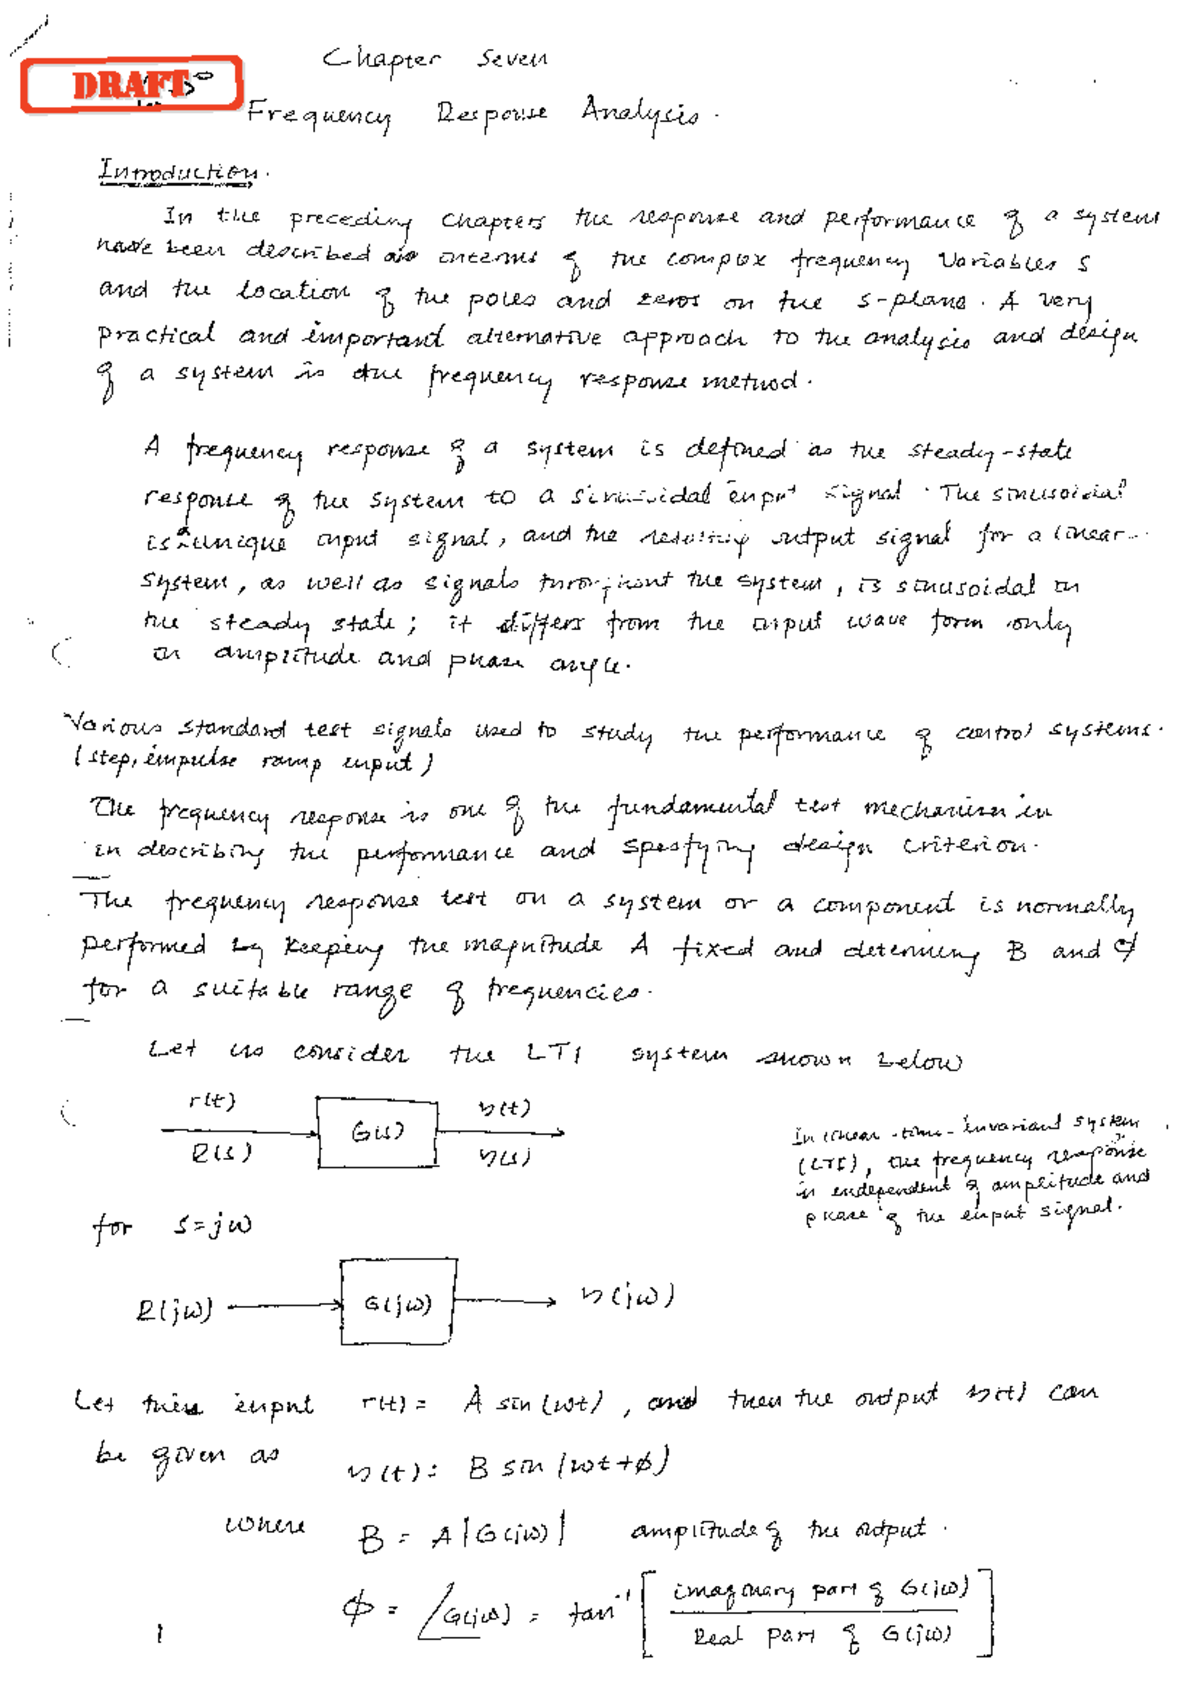 Chapter Seven
DRAFT
Frequency Response Analysis.
Introduction.
In the preceding chapters the response and performance of a system
have been described as interms of the complex frequency variables s
and the location of the poles and zeros on the s-plane. A very
practical and important alternative approach to the analysis and design
of a system is the frequency response method.
A frequency response of a system is defined as the steady-state
response of the system to a sinusoidal input signal. The sinusoidal
is a unique input signal, and the resulting output signal for a linear
system, as well as signals throughout the system, is sinusoidal in
the steady state; it differs from the input wave form only
in amplitude and phase angle.
Various standard test signals used to study the performance of control systems.
(step, impulse ramp input)
The frequency response is one of the fundamental test mechanism in
in describing the performance and spesfying design criterion.
The frequency response test on a system or a component is normally
performed by keeping the magnitude A fixed and determing B and ϕ
for a suitable range of frequencies.
Let us consider the LTI system shown below
r(t)
R(s)
G(s)
y(t)
y(s)
In linear-time-invariant system
(LTI), the frequency response
is independent of amplitude and
phase of the input signal.
for s=jω
R(jω)
G(jω)
y(jω)
Let the input r(t) = A sin(ωt), and then the output y(t) can
be given as
y(t): B sin(ωt+ϕ)
where B = A|G(jω)| amplitude of the output.
ϕ = ∠G(jω) = tan⁻¹ [ imaginary part of G(jω)
Real part of G(jω) ]